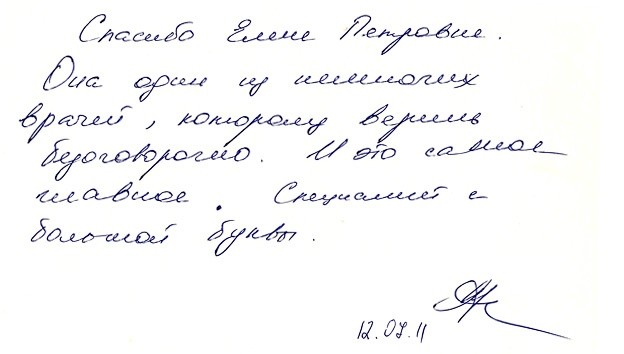 Спасибо Елене Петровне.
Она один из немногих
врачей, которому веришь
безоговорочно. И это самое
главное. Специалист с
большой буквы.
12.07.11